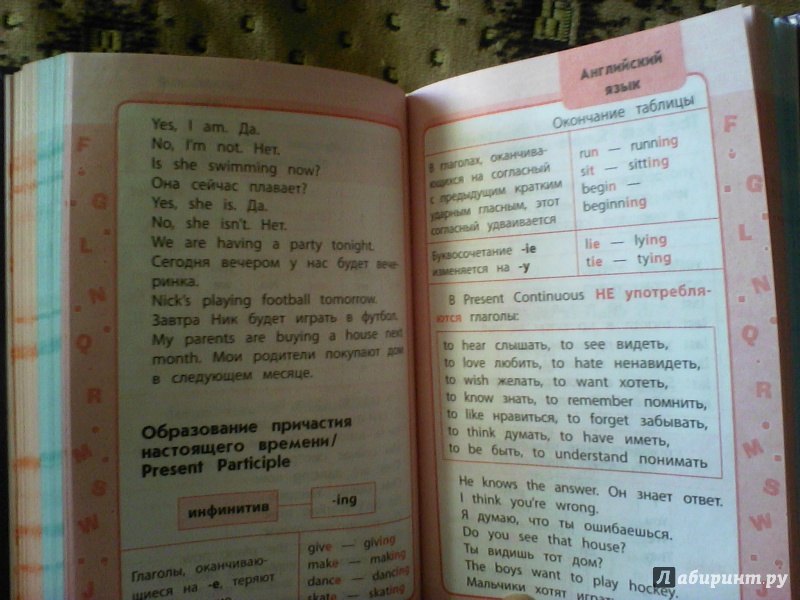 Yes, I am. Да.
No, I'm not. Нет.
Is she swimming now?
Она сейчас плавает?
Yes, she is. Да.
No, she isn't. Нет.
We are having a party tonight.
Сегодня вечером у нас будет вече-
ринка.
Nick's playing football tomorrow.
Завтра Ник будет играть в футбол.
My parents are buying a house next
month. Мои родители покупают дом
в следующем месяце.
Образование причастия
настоящего времени/
Present Participle
инфинитив
-ing
Глаголы, оканчиваю-
щиеся на -e, теряют
give — giving
make — making
dance — dancing
skate — skating
Английский
язык
Окончание таблицы
В глаголах, оканчива-
ющихся на согласный
с предыдущим кратким
ударным гласным, этот
согласный удваивается
run — running
sit — sitting
begin —
beginning
Буквосочетание -ie
изменяется на -y
lie — lying
tie — tying
В Present Continuous НЕ употребля-
ются глаголы:
to hear слышать, to see видеть,
to love любить, to hate ненавидеть,
to wish желать, to want хотеть,
to know знать, to remember помнить,
to like нравиться, to forget забывать,
to think думать, to have иметь,
to be быть, to understand понимать
He knows the answer. Он знает ответ.
I think you're wrong.
Я думаю, что ты ошибаешься.
Do you see that house?
Ты видишь тот дом?
The boys want to play hockey.
Мальчики хотят
F
G
L
N
Q
R
M
S
W
J
F
G
L
N
Q
R
M
S
W
J
Лабиринт.ру